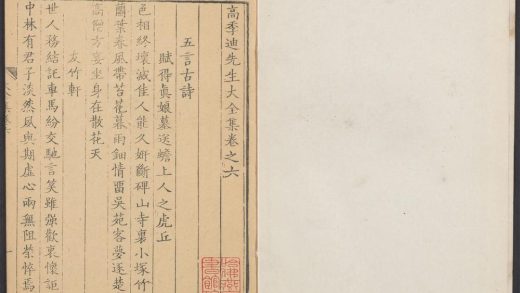 高季迪先生大全集卷之六
五言古詩
賦得眞娘墓送蟾上人之虎丘
色相終壞滅佳人能久妍斷碑山寺裏小塚竹
蘭葉春風帶苔花暮雨鈿情畱吳苑客夢逐楚
高僧方宴坐身在散花天
友竹軒
世人移結託車馬紛交馳言笑雖強歡衷懷詎
中林有君子淡然風與期虛心兩無阻榮悴焉